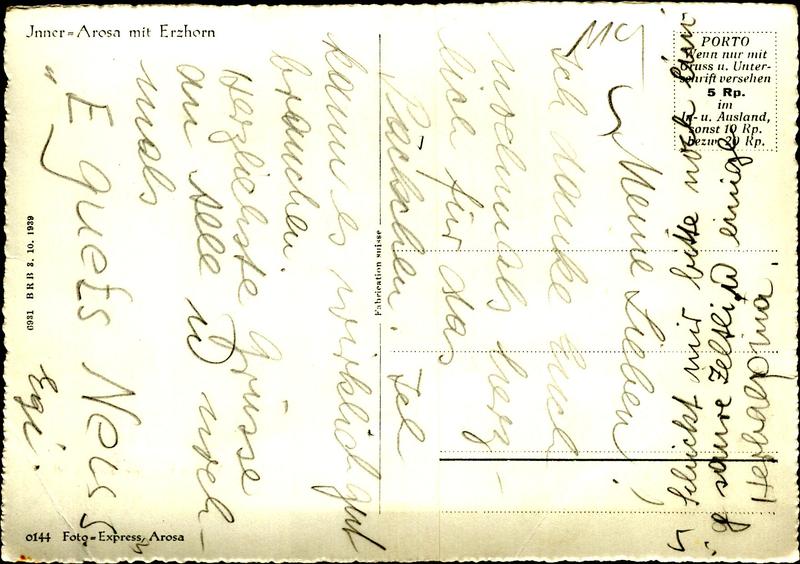 Inner-Arosa mit Erzhorn
PORTO
Wenn nur mit
Gruss u. Unter-
schrift versehen
5 Rp.
im
In- u. Ausland,
sonst 10 Rp.
bezw. 20 Rp.
Meine Lieben!
Ich danke Euch
nochmals herz-
lich für das
Päckchen. Ich
kann es wirklich gut
brauchen.
Herzlichste Grüsse
an alle u noch-
mals
"E guets Neus"
schickt mir bitte noch ein
g saure Zeltli u einige
Herbalpina.
Fabrication suisse
6931 BRB 3. 10. 1939
0144 Foto-Express, Arosa